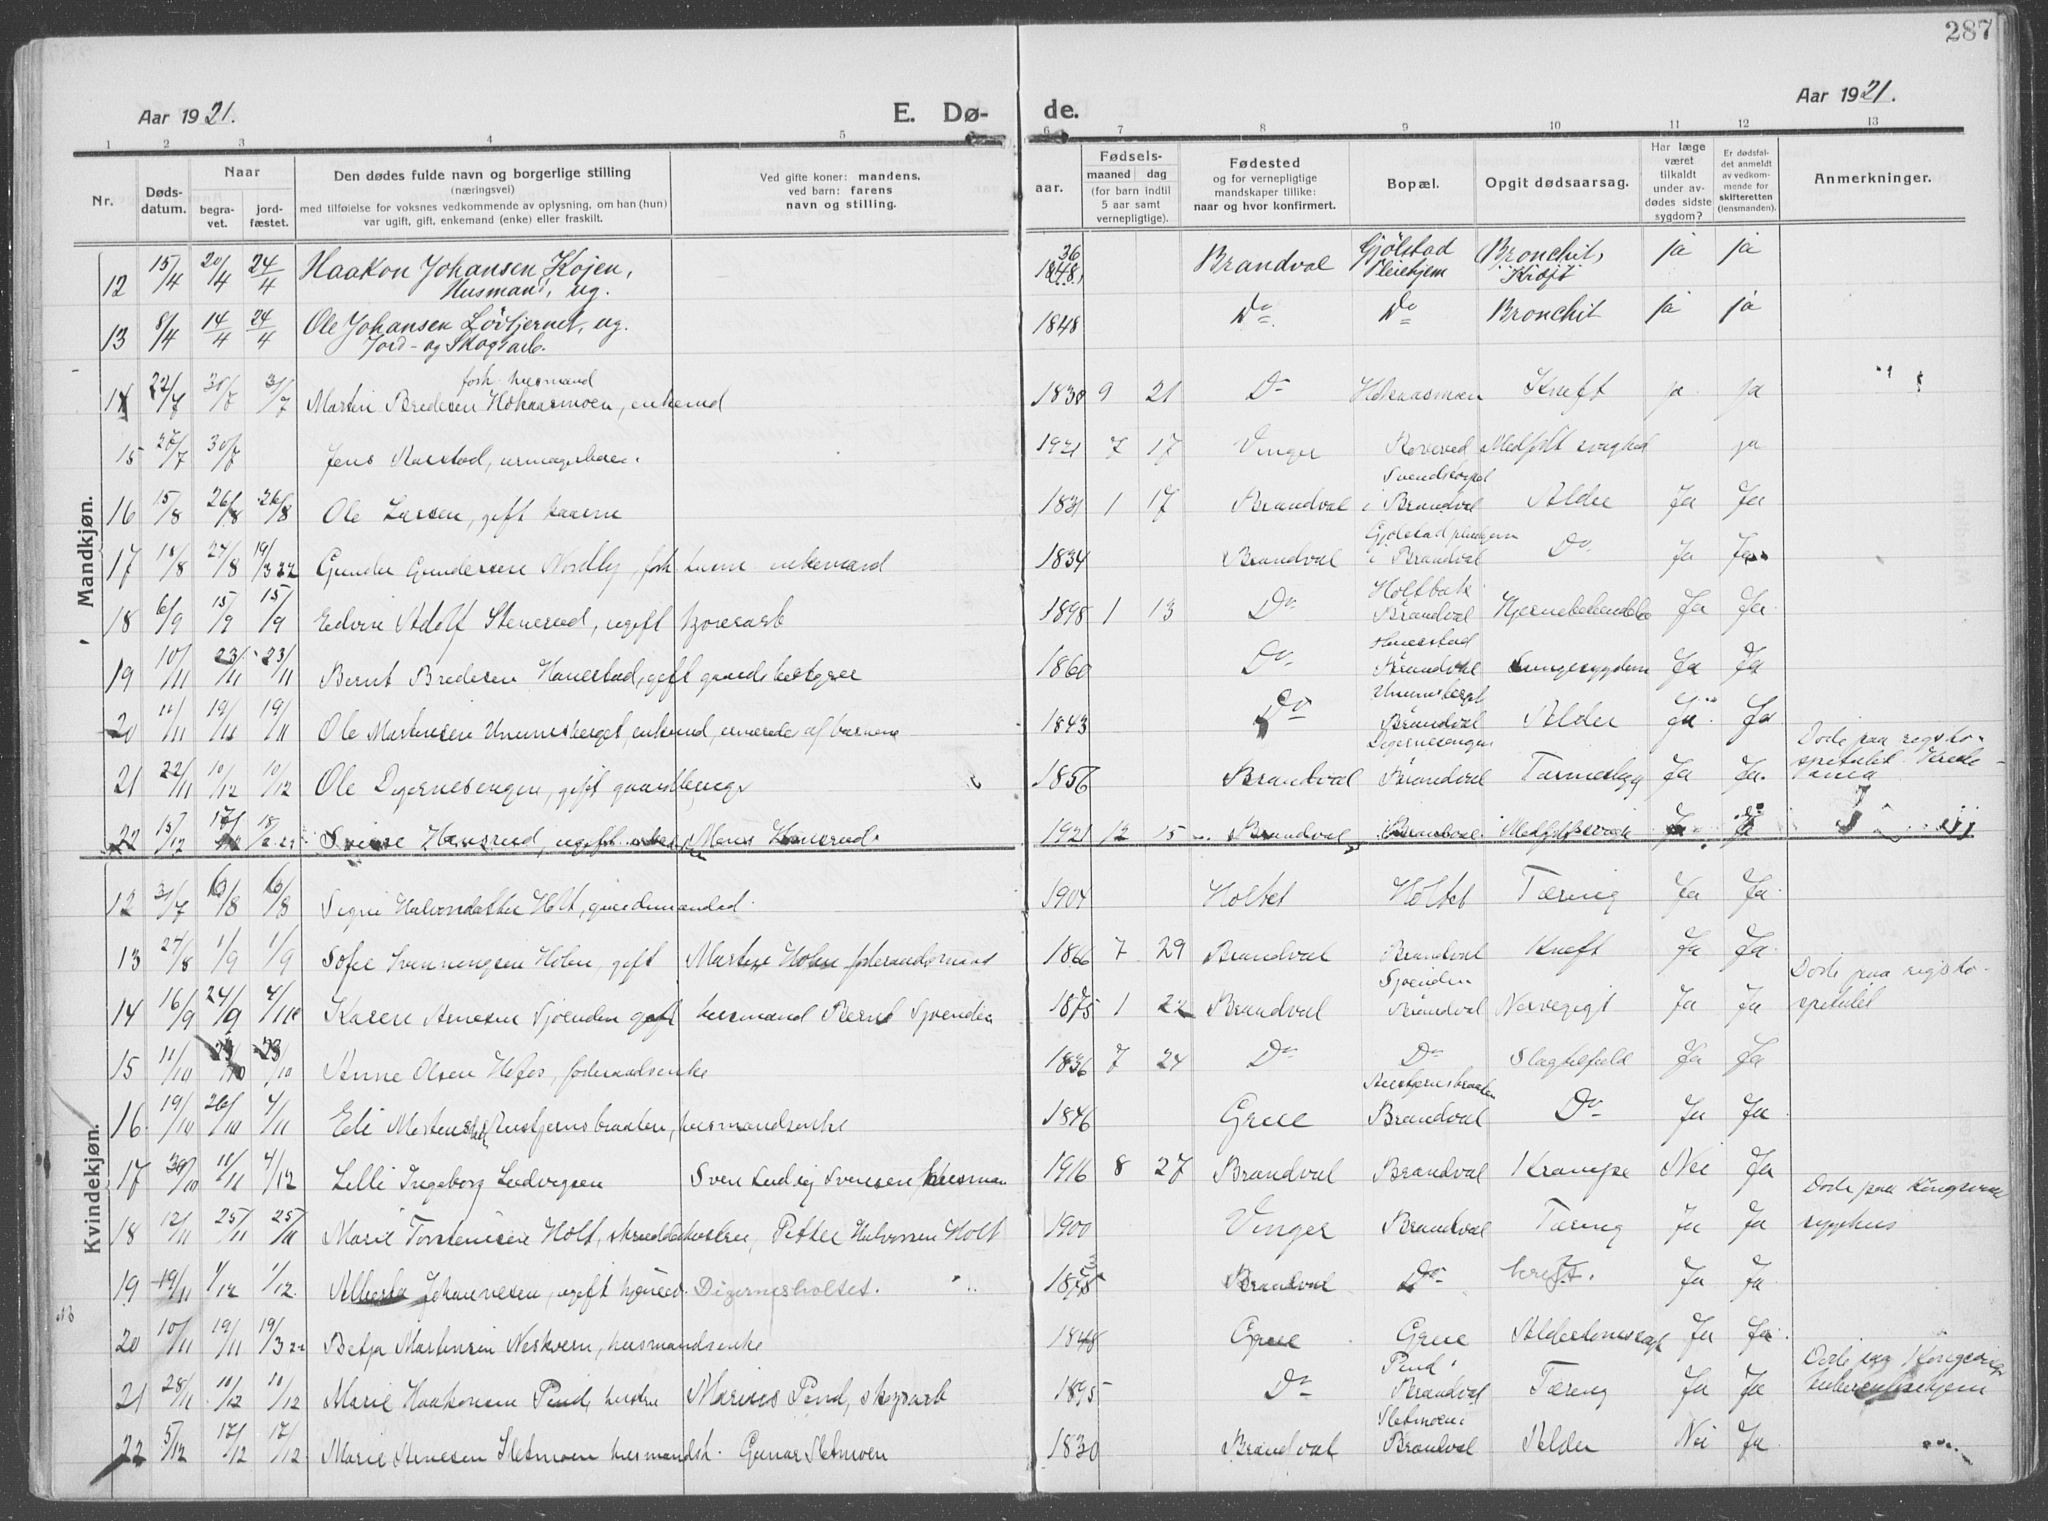 287
Aar 1921. E. Dø- de. Aar 1921.
1 2 3 4 5 6 7 8 9 10 11 12 13
Nr.
Døds-
datum.
Naar
begra-
vet.
jord-
fæstet.
Den dødes fulde navn og borgerlige stilling
(næringsvei)
med tilføielse for voksnes vedkommende av oplysning, om han (hun)
var ugift, gift, enkemand (enke) eller fraskilt.
Ved gifte koner: mandens,
ved barn: farens
navn og stilling.
aar.
Fødsels-
maaned dag
(for barn indtil
5 aar samt
vernepligtige).
Fødested
og for vernepligtige
mandskaper tillike:
naar og hvor konfirmert.
Bopæl.
Opgit dødsaarsag.
Har læge
været
tilkaldt
under av-
dødes sidste
sygdom?
Er dødsfal-
det anmeldt
av vedkom-
mende for
skifteretten
(lensmanden).
Anmerkninger.
Mandkjøn.
12 15/4 20/4 24/4 Haakon Johansen Kojen, Husmand, ug. 1848 36 Brandval Gjølstad Pleiehjem Bronchit, Kræft ja ja
13 8/4 14/4 24/4 Ole Johansen Lövtjernet, ug. Jord- og Skogsarb. 1848 Do Do Bronchit ja ja
14 22/7 30/7 31/7 Martin Bredesen Hokaasmoen, forh. husmand enkemd 1830 9 21 Do Hokaasmoen Kræft ja ja
15 27/7 30/7 Jens Rarstad, urmagerbarn. 1921 7 17 Vinger Roverud Medfødt svaghed ja
16 15/8 26/8 26/8 Ole Larsen, gift kaarm 1831 1 17 Brandval Svendstorpet i Brandval Alder Ja Ja
17 18/8 27/8 19/3 22 Gunder Gundersen Nordby, forh husm enkemand 1834 Brandval Gjølstad pleiehjem i Brandval Do Ja Ja
18 6/9 15/9 15/9 Edvin Adolf Stenerud, ugift kjørearb 1898 1 13 Do Holtbak Brandval Hjernebetændelse Ja Ja
19 10/11 23/11 23/11 Bernt Bredesen Hanestad, gift gaardsbestyrer 1860 Do Hanestad Brandval Lungesygdom Ja Ja
20 11/11 19/11 19/11 Ole Martinsen Ummesberget, enkemd, ernæredes af barnene 1843 Do Ummesberget Brandval Alder Ja Ja
21 22/11 10/12 10/12 Ole Digernesengen, gift gaardbruger 1856 Brandval Digernesengen Brandval Tarmeslyng Ja Ja Døde paa rigsho-
spitalet
22 15/12 17/12 18/2 22 Sverre Hansrud, Hans Hansrud 1921 12 15 Brandval Brandval Medf. svagh. Ja
Kvindekjøn.
12 31/7 6/8 6/8 Signe Halvorsdatter Holt, gaardmandsd. 1904 Holtet Holtet Tæring Ja Ja
13 27/8 1/9 1/9 Sofie Svenningsen Holen, gift Martin Holen føderaadsmand 1866 7 29 Brandval Brandval Kræft Ja Ja
14 16/9 24/9 4/11 Karen Arnesen Sjøenden gift husmand Bernt Sjøenden 1875 1 22 Brandval Sjøenden Brandval Nervegigt Ja Ja Døde paa rigsho-
spitalet
15 11/10 23/10 23/10 Anne Olsen Hofos, føderaadsenke 1836 7 24 Do Do Slagtilfælde Ja Ja
16 19/10 26/10 4/11 Eli Mortensd. Aurstjernsbraaten, husmandsenke 1846 Grue Aurstjernsbraaten Brandval Do Ja Ja
17 30/10 11/11 4/12 Lilli Ingeborg Ludvigsen Sven Ludvig Svensen husman 1916 8 27 Brandval Brandval Krampe Nei Ja
18 12/11 25/11 25/11 Marie Torstensen Holt, skrædderhustru, Petter Halvorsen Holt 1900 Vinger Brandval Tæring Ja Ja Døde paa Kongsving
sygehus
19 19/11 1/12 1/12 Alberta Johannesen, ugift Digernesholtet. 1875 Brandval Do kreft. Ja Ja
20 10/11 19/11 19/3 22 Betja Martinsen Neskvern, husmandsenke 1848 Grue Grue Alderdomssvagh Ja Ja
21 28/11 10/12 10/12 Marie Haakonsen Pind, hustru Marius Pind, skogsarb 1895 Do Pind Brandval Tæring Ja Ja Døde paa Kongsving
tuberkulosehjem
22 5/12 17/12 17/12 Marie Arnesen Sletmoen husmandsk. Gunar Sletmoen 1830 Brandval Sletmoen i Brandval Alder Nei Ja